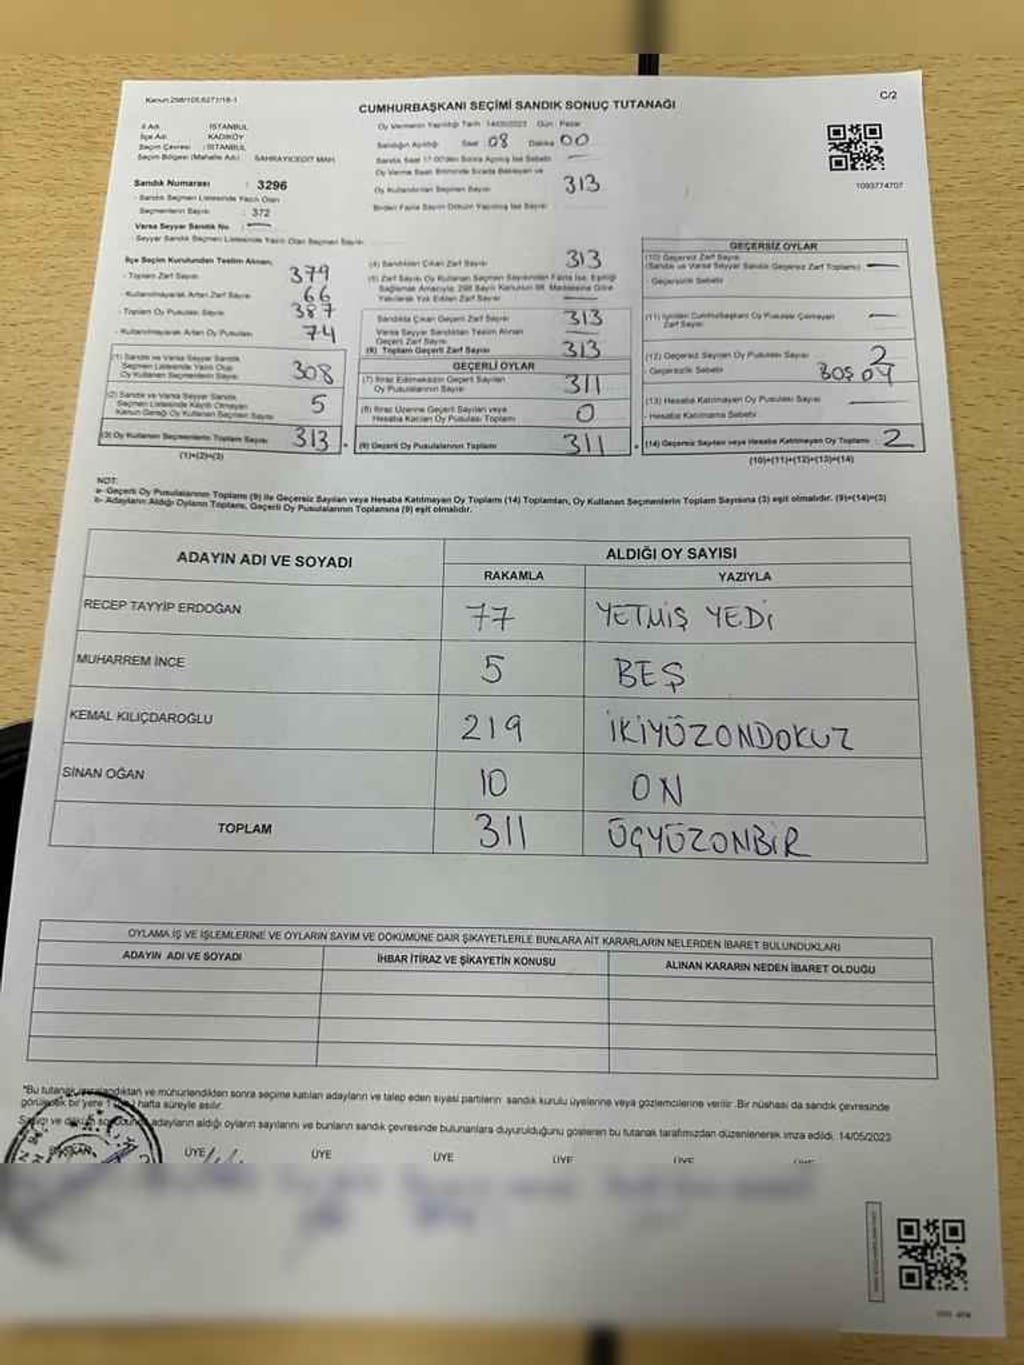 Kanun:298/105,6271/18-1
C/2
CUMHURBAŞKANI SEÇİMİ SANDIK SONUÇ TUTANAĞI
İl Adı : İSTANBUL
İlçe Adı : KADIKÖY
Seçim Çevresi : İSTANBUL
Seçim Bölgesi (Mahalle Adı) : SAHRAYICEDİT MAH.
Sandık Numarası : 3296
- Sandık Seçmen Listesinde Yazılı Olan
Seçmenlerin Sayısı : 372
Varsa Seyyar Sandık No : —
- Seyyar Sandık Seçmen Listesinde Yazılı Olan Seçmen Sayısı
Oy Vermenin Yapıldığı Tarih 14/05/2023 Gün : Pazar
Sandığın Açıldığı Saat 08 Dakika 00
Sandık Saat 17.00'den Sonra Açılmış İse Sebebi —
Oy Verme Saati Bitiminde Sırada Bekleyen ve
Oy Kullandırılan Seçmen Sayısı 313
Birden Fazla Sayım Döküm Yapılmış İse Sayısı
1093774707
İlçe Seçim Kurulundan Teslim Alınan;
- Toplam Zarf Sayısı 379
- Kullanılmayarak Artan Zarf Sayısı 66
- Toplam Oy Pusulası Sayısı 387
- Kullanılmayarak Artan Oy Pusulası 74
(1) Sandık ve Varsa Seyyar Sandık
Seçmen Listesinde Yazılı Olup
Oy Kullanan Seçmenlerin Sayısı 308
(2) Sandık ve Varsa Seyyar Sandık
Seçmen Listesinde Kayıtlı Olmayan
Kanun Gereği Oy Kullanan Seçmen Sayısı 5
(3) Oy Kullanan Seçmenlerin Toplam Sayısı 313
(1)+(2)=(3)
(4) Sandıktan Çıkan Zarf Sayısı 313
(5) Zarf Sayısı Oy Kullanan Seçmen Sayısından Fazla İse, Eşitliği
Sağlamak Amacıyla 298 Sayılı Kanunun 98. Maddesine Göre
Yakılarak Yok Edilen Zarf Sayısı —
Sandıkta Çıkan Geçerli Zarf Sayısı 313
Varsa Seyyar Sandıktan Teslim Alınan
Geçerli Zarf Sayısı —
(6) Toplam Geçerli Zarf Sayısı 313
GEÇERLİ OYLAR
(7) İtiraz Edilmeksizin Geçerli Sayılan
Oy Pusulalarının Sayısı 311
(8) İtiraz Üzerine Geçerli Sayılan veya
Hesaba Katılan Oy Pusulası Toplamı 0
(9) Geçerli Oy Pusulalarının Toplamı 311
GEÇERSİZ OYLAR
(10) Geçersiz Zarf Sayısı
(Sandık ve Varsa Seyyar Sandık Geçersiz Zarf Toplamı) —
- Geçersizlik Sebebi
(11) İçinden Cumhurbaşkanı Oy Pusulası Çıkmayan
Zarf Sayısı —
(12) Geçersiz Sayılan Oy Pusulası Sayısı 2
- Geçersizlik Sebebi BOŞ OY
(13) Hesaba Katılmayan Oy Pusulası Sayısı —
- Hesaba Katılmama Sebebi
(14) Geçersiz Sayılan veya Hesaba Katılmayan Oy Toplamı : 2
(10)+(11)+(12)+(13)=(14)
NOT:
a- Geçerli Oy Pusulalarının Toplamı (9) ile Geçersiz Sayılan veya Hesaba Katılmayan Oy Toplamı (14) Toplamları, Oy Kullanan Seçmenlerin Toplam Sayısına (3) eşit olmalıdır. (9)+(14)=(3)
b- Adayların Aldığı Oyların Toplamı, Geçerli Oy Pusulalarının Toplamına (9) eşit olmalıdır.
ADAYIN ADI VE SOYADI
ALDIĞI OY SAYISI
RAKAMLA YAZIYLA
RECEP TAYYİP ERDOĞAN 77 YETMİŞ YEDİ
MUHARREM İNCE 5 BEŞ
KEMAL KILIÇDAROĞLU 219 İKİYÜZONDOKUZ
SİNAN OĞAN 10 ON
TOPLAM 311 ÜÇYÜZONBİR
OYLAMA İŞ VE İŞLEMLERİNE VE OYLARIN SAYIM VE DÖKÜMÜNE DAİR ŞİKAYETLERLE BUNLARA AİT KARARLARIN NELERDEN İBARET BULUNDUKLARI
ADAYIN ADI VE SOYADI İHBAR İTİRAZ VE ŞİKAYETİN KONUSU ALINAN KARARIN NEDEN İBARET OLDUĞU
*Bu tutanak imzalandıktan ve mühürlendikten sonra seçime katılan adayların ve talep eden siyasi partilerin sandık kurulu üyelerine veya gözlemcilerine verilir. Bir nüshası da sandık çevresinde
görülecek bir yere 1 hafta süreyle asılır.
Sayım ve döküm sonucunda, adayların aldığı oyların sayılarını ve bunların sandık çevresinde bulunanlara duyurulduğunu gösteren bu tutanak tarafımızdan düzenlenerek imza edildi. 14/05/2023
BAŞKAN ÜYE ÜYE ÜYE ÜYE ÜYE